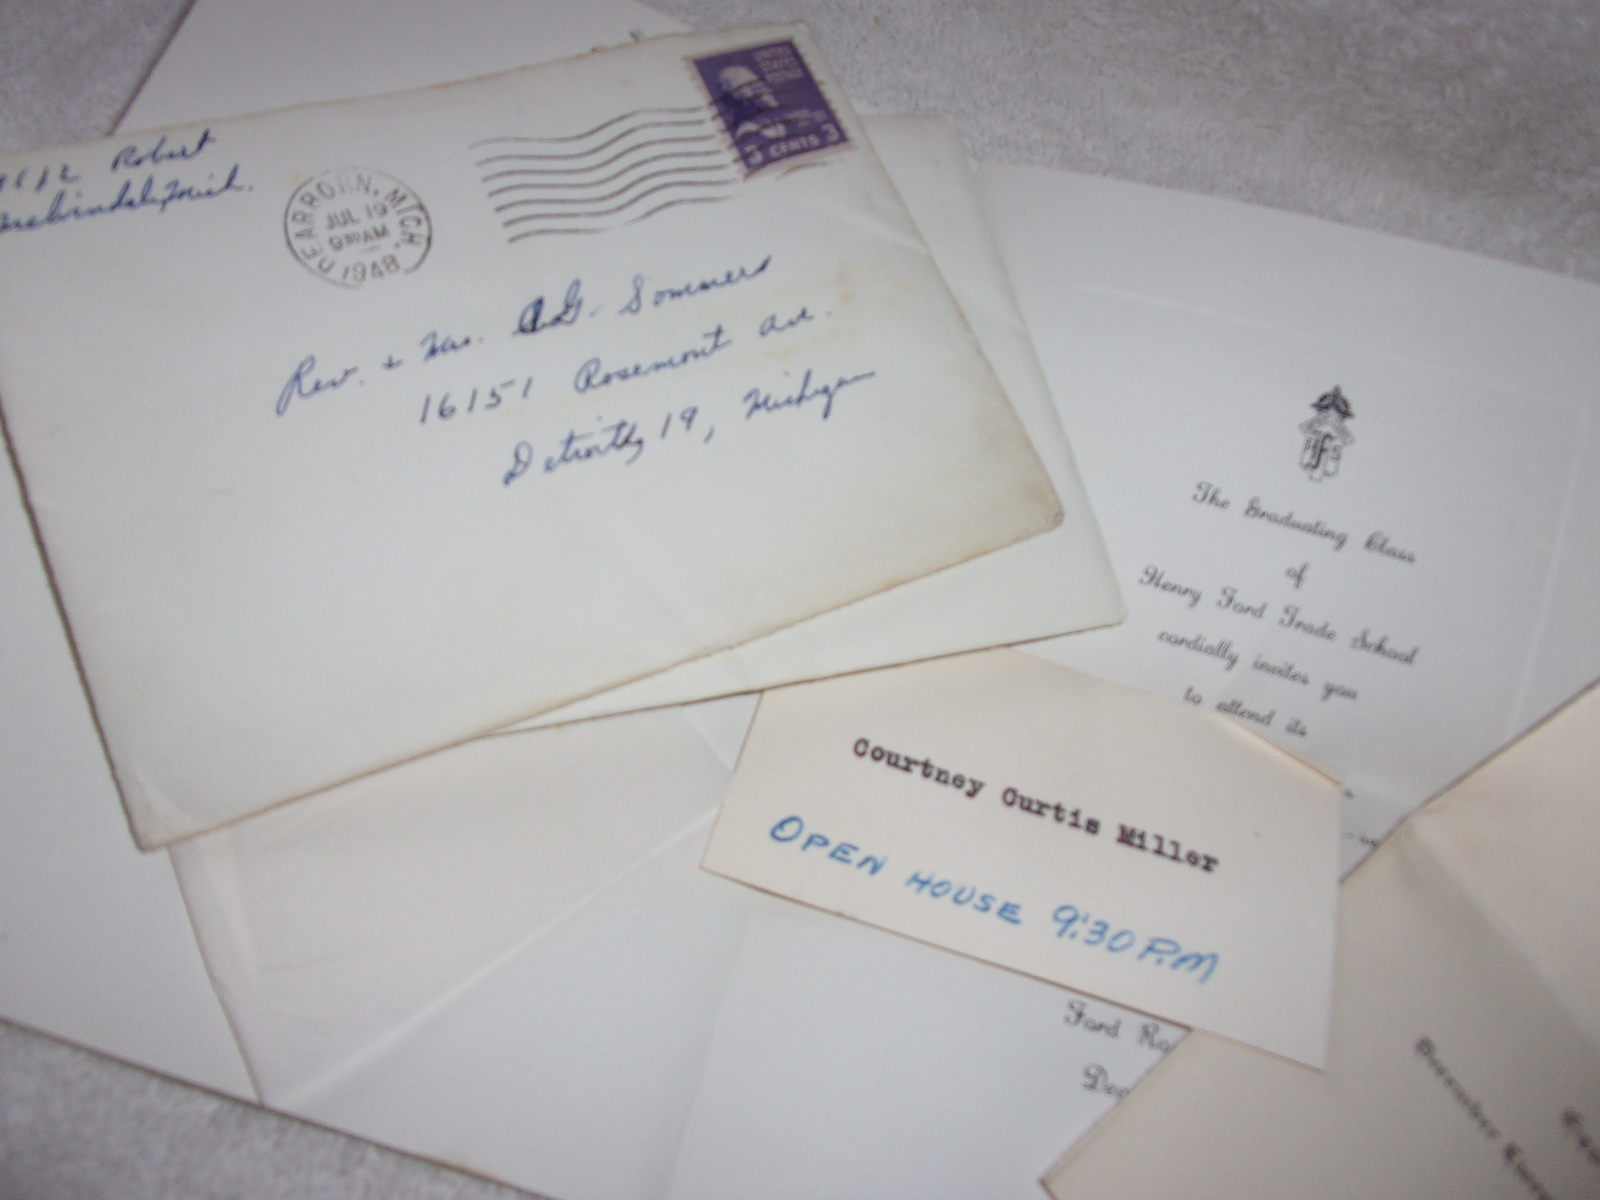 Robert
Mich.
DEARBORN, MICH.
JUL 19
9 30 AM
1948
UNITED
STATES
POSTAGE
3 CENTS 3
Rev. + Mrs. A.G. Sommers
16151 Rosemont Ave.
Detroit, 19, Michigan
The Graduating Class
of
Henry Ford Trade School
cordially invites you
to attend its
Courtney Curtis Miller
OPEN HOUSE 9:30 P.M
Ford Ro
Dea